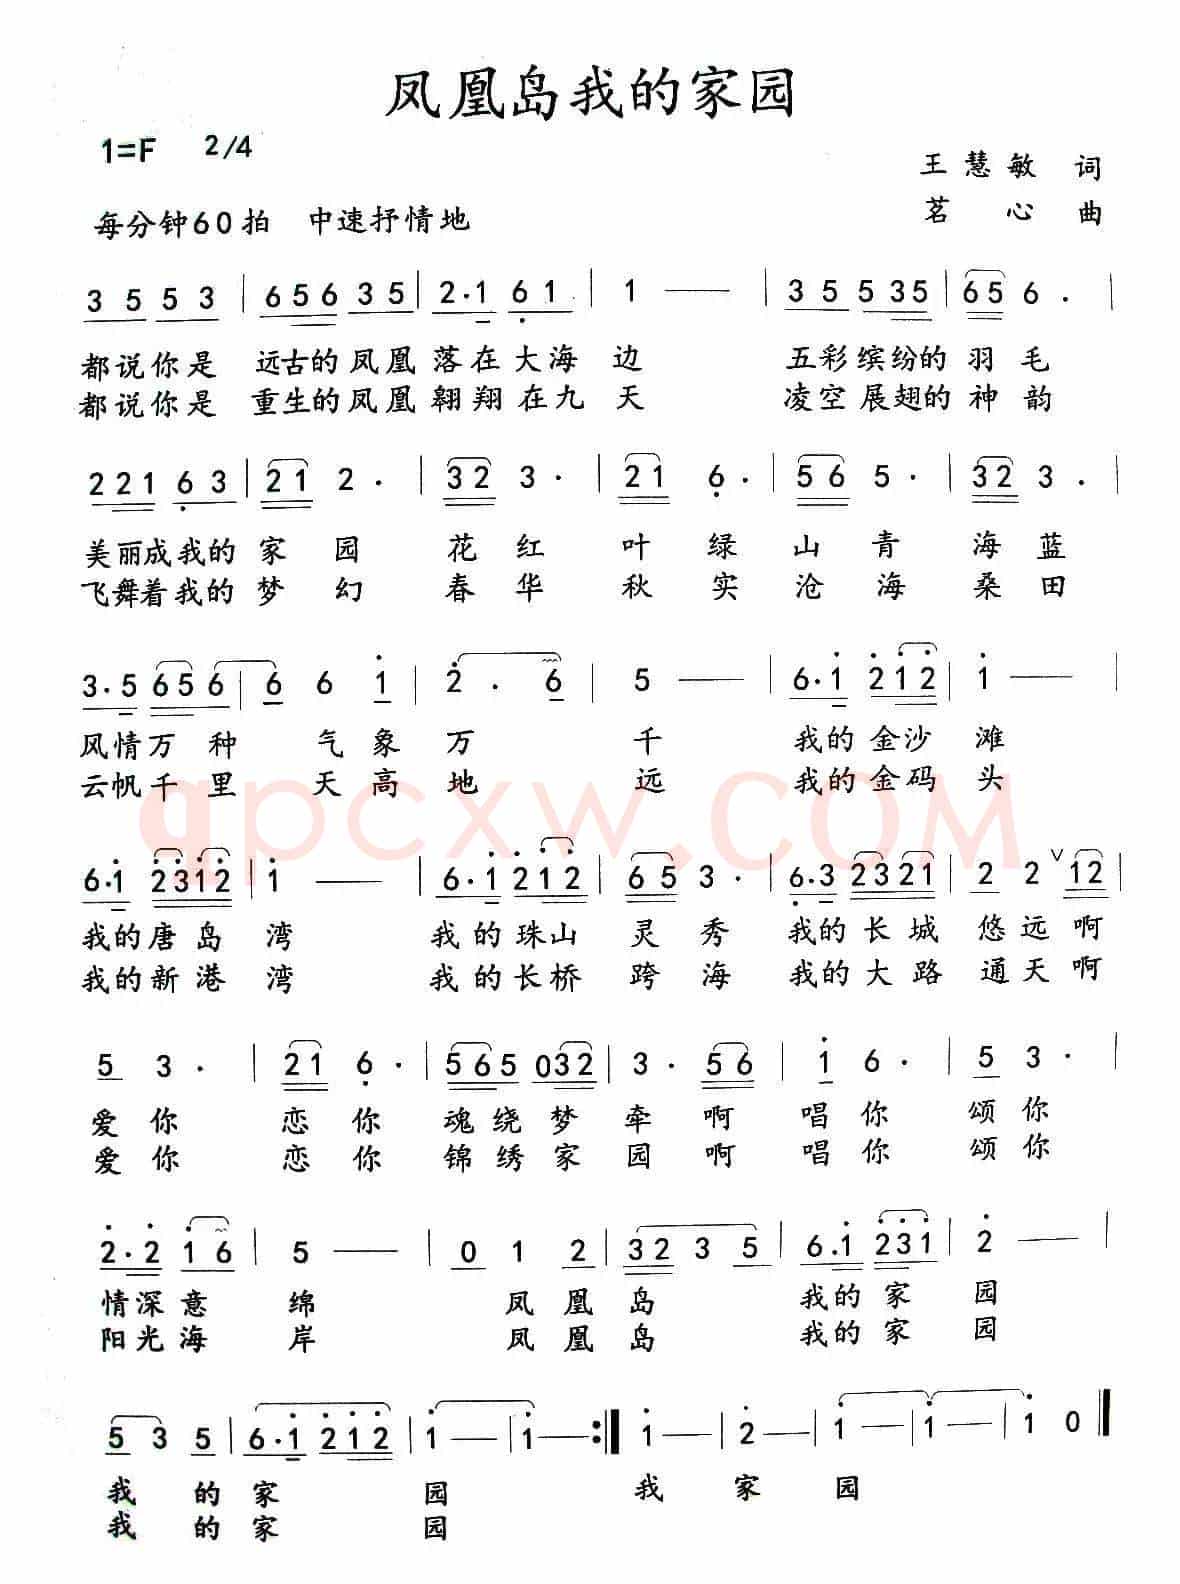 凤凰岛我的家园
1=F 2/4
王慧敏 词
每分钟60拍 中速抒情地
茗心 曲
3 5 5 3 | 6 5 6 3 5 | 2·1 6 1 | 1 — | 3 5 5 3 5 | 6 5 6 · |
都说你是 远古的凤凰 落在大海边 五彩缤纷的 羽毛
都说你是 重生的凤凰 翱翔在九天 凌空展翅的神韵
2 2 1 6 3 | 2 1 2 · | 3 2 3 · | 2 1 6 · | 5 6 5 · | 3 2 3 · |
美丽成我的 家园 花红 叶绿 山青 海蓝
飞舞着我的 梦幻 春华 秋实 沧海 桑田
3·5 6 5 6 | 6 6 1 | 2 · 6 | 5 — | 6·1 2 1 2 | 1 — |
风情万种 气象万千 我的金沙滩
云帆千里 天高地远 我的金码头
6·1 2 3 1 2 | 1 — | 6·1 2 1 2 | 6 5 3 · | 6·3 2 3 2 1 | 2 2 ∨ 1 2 |
我的唐岛湾 我的珠山 灵秀 我的长城 悠远啊
我的新港湾 我的长桥 跨海 我的大路 通天啊
5 3 · | 2 1 6 · | 5 6 5 0 3 2 | 3 · 5 6 | 1 6 · | 5 3 · |
爱你 恋你 魂绕梦牵啊 唱你 颂你
爱你 恋你 锦绣家园啊 唱你 颂你
2·2 1 6 | 5 — | 0 1 2 | 3 2 3 5 | 6·1 2 3 1 | 2 — |
情深意绵 凤凰岛 我的家园
阳光海岸 凤凰岛 我的家园
5 3 5 | 6·1 2 1 2 | 1 — | 1 — :‖ 1 — | 2 — | 1 — | 1 — | 1 0 ‖
我的家园 我家园
我的家园
qpcxw.COM